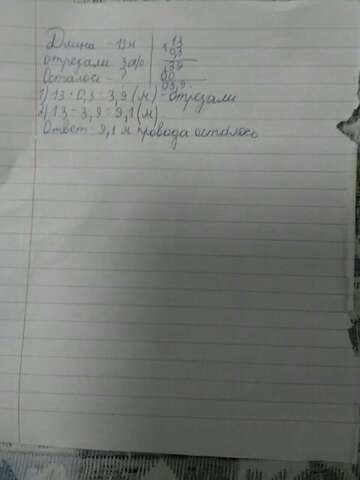 Длина - 13м
отрезали 30%
Осталось - ?
13
0,3
39
00
03,9
1) 13 · 0,3 = 3,9 (м) - отрезали
2) 13 - 3,9 = 9,1 (м)
Ответ: 9,1 м провода осталось